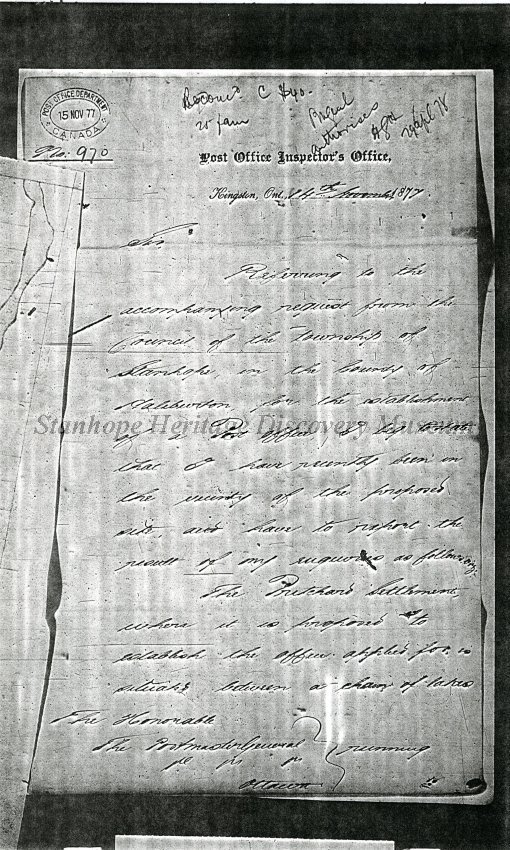 POST OFFICE DEPARTMENT
15 NOV 77
CANADA
No: 970
Recom'd C $40.
Authorises
Post Office Inspector's Office,
Kingston, Ont. 14th November 1877.
Sir
Referring to the
accompanying request from the
Council of the Township of
Stanhope in the County of
Haliburton for the establishment
Stanhope Heritage Discovery Museum
of a Post Office I
that I have recently been in
the vicinity of the proposed
site, and have to report the
result of my enquiries as follows
The Pritchard Settlement,
where it is proposed to
establish the office applied for is
situated between a chain of lakes
The Honorable
The Postmaster General
running
Ottawa